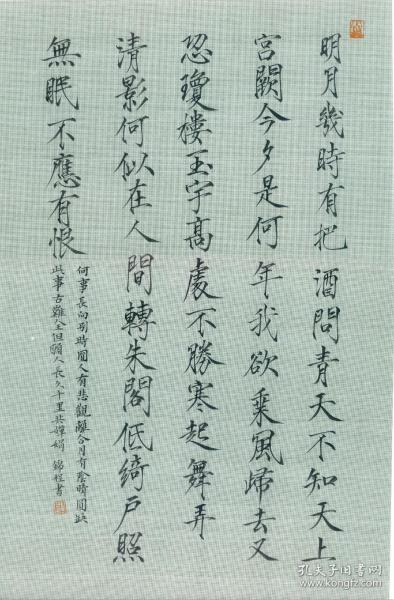 明月幾時有把酒問青天不知天上
宮闕今夕是何年我欲乘風歸去又
恐瓊樓玉宇高處不勝寒起舞弄
清影何似在人間轉朱閣低綺戶照
無眠不應有恨
何事長向別時圓人有悲歡離合月有陰晴圓缺
此事古難全但願人長久千里共嬋娟 錦程書
孔夫子旧书网
www.kongfz.com